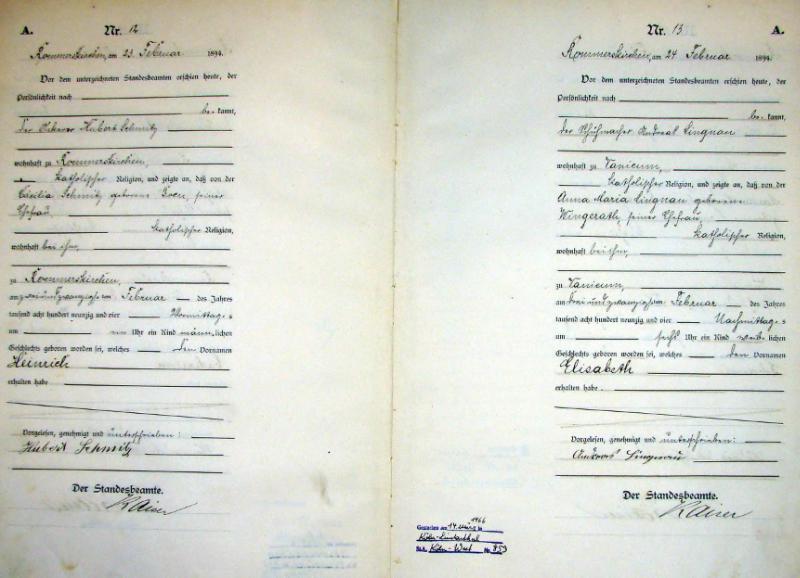 A.
Nr. 12
Rommerskirchen, am 23. Februar 1894.
Vor dem unterzeichneten Standesbeamten erschien heute, der
Persönlichkeit nach
be- kannt,
der Ackerer Hubert Schmitz
wohnhaft zu Rommerskirchen,
katholischer Religion, und zeigte an, daß von der
Cäcilia Schmitz geborene seiner
Ehefrau,
katholischer Religion,
wohnhaft bei ihm,
zu Rommerskirchen,
am zwei und zwanzigsten Februar des Jahres
tausend acht hundert neunzig und vier Vormittags
um Uhr ein Kind männlichen
Geschlechts geboren worden sei, welches den Vornamen
Heinrich
erhalten habe
Vorgelesen, genehmigt und unterschrieben:
Hubert Schmitz
Der Standesbeamte.
Kaiser
Nr. 13
A.
Rommerskirchen, am 24 Februar 1894
Vor dem unterzeichneten Standesbeamten erschien heute, der
Persönlichkeit nach
be- kannt,
der Schuhmacher Andreas Lingnau
wohnhaft zu Vanicum,
katholischer Religion, und zeigte an, daß von der
Anna Maria Lingnau geborene
Wingerath, seiner Ehefrau,
katholischer Religion,
wohnhaft bei ihm,
zu Vanicum,
am drei und zwanzigsten Februar des Jahres
tausend acht hundert neunzig und vier Nachmittags
um sechs Uhr ein Kind weiblichen
Geschlechts geboren worden sei, welches den Vornamen
Elisabeth
erhalten habe.
Vorgelesen, genehmigt und unterschrieben:
Andreas Lingnau
Der Standesbeamte.
Kaiser
Gestorben am 14. März 1966 in
Köln-Lindenthal
St.A. Köln-West Nr. 853